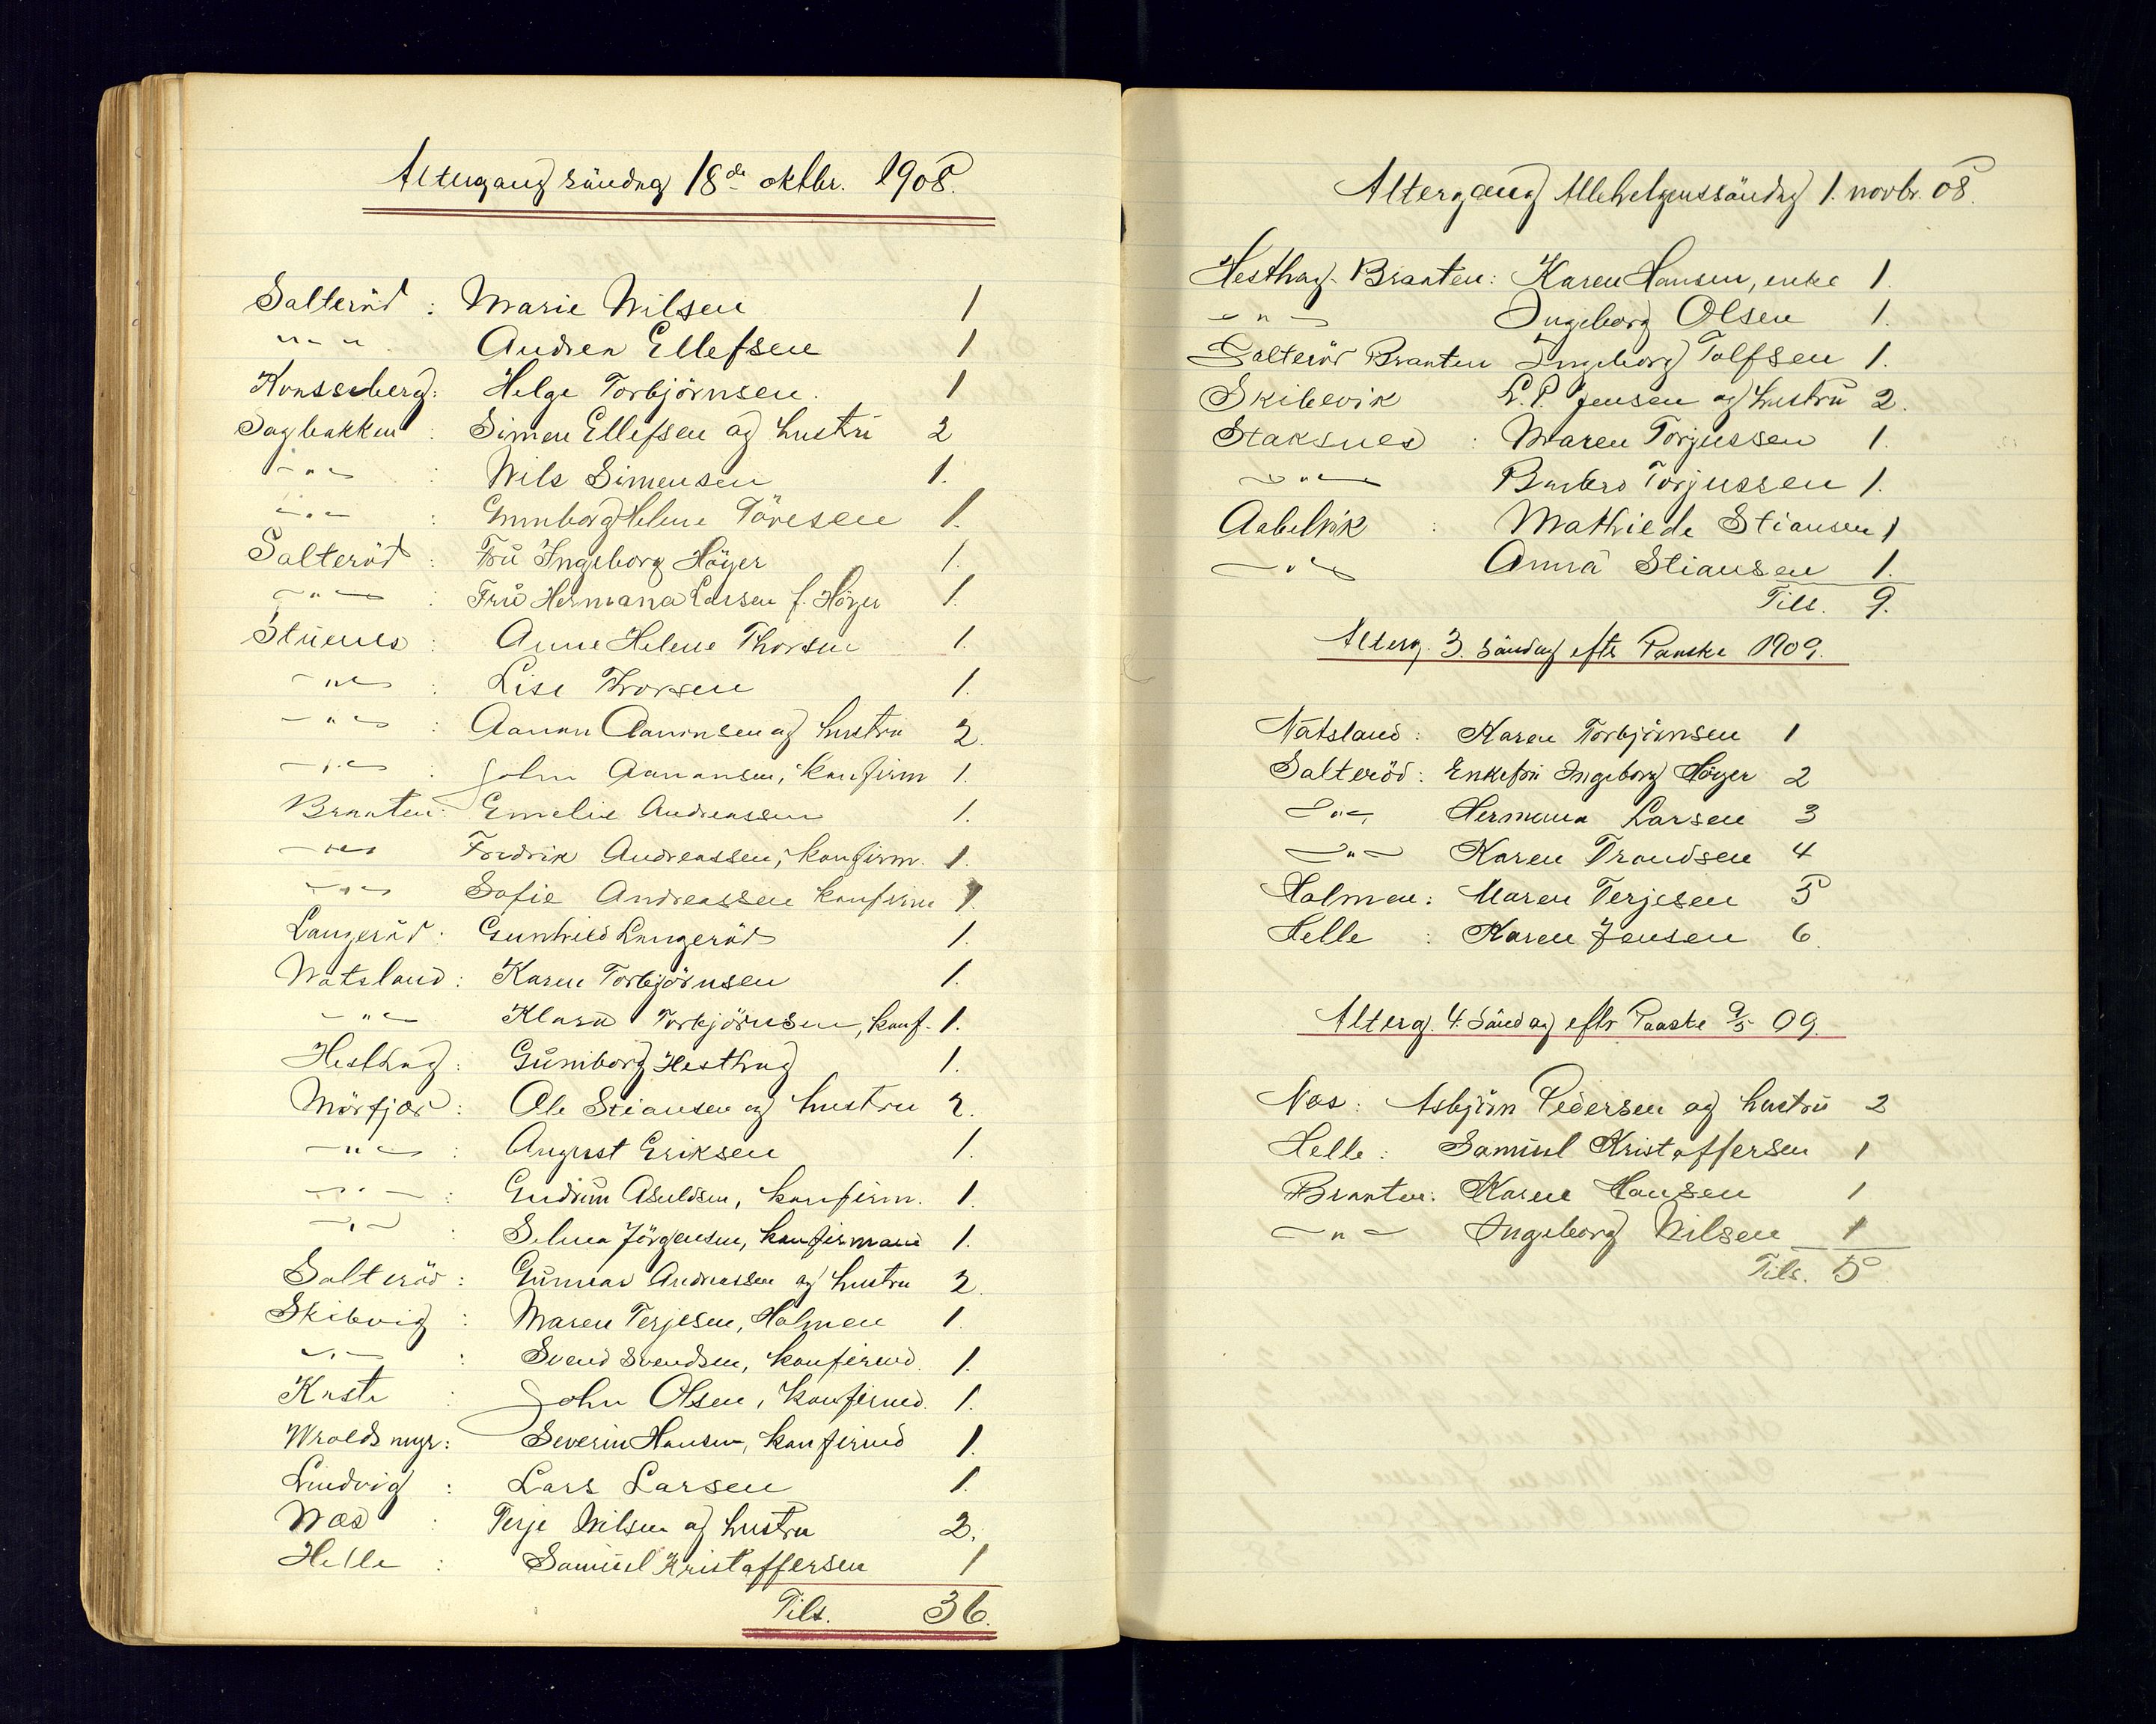 Altergang søndag 18de oktbr. 1908.
Salteröd : Marie Nilsen 1
" - " Andrea Ellefsen 1
Helge Torbjörnsen. 1
Sagbakken : Simen Ellefsen og hustru 2
- " - : Nils Simensen 1.
- " - : Gunborg Helene Töresen 1.
Salteröd : Fru Ingeborg Höyer 1.
- " - : Fru Hermana Larsen f. Höyer 1.
Stuenes : Anne Helene Thorsen 1.
- " - : Lise Thorsen 1.
- " - : Aanon Aanonsen og hustru 2.
- " - : John Aanonsen, konfirm 1.
Braaten : Emelie Andreassen 1.
- " - Fredrik Andreassen, konfirm. 1.
- " - Sofie Andreassen konfirm 1.
Langeröd : Gunhild Langeröd 1.
Natsland : Karen Torbjörnsen 1.
- " - Klara Torbjörnsen, konf. 1.
Hesthag : Gunborg Hesthag 1.
Mörfjær : Ole Stiansen og hustru 2.
- " - : August Eriksen 1.
- " - : Gudrun Asuldsen, konfirm. 1.
- " - : Selma Jörgensen, konfirmand 1.
Salteröd : Gunnar Andreassen og hustru 2.
Skibvig : Maren Terjesen, Holmen 1.
- " - : Svend Svendsen, konfirmd. 1.
Kaste : John Olsen, konfirmd. 1.
Wroldsmyr : Severin Hansen, konfirmd 1.
Lindvig : Lars Larsen 1.
Næs : Terje Nilsen og hustru 2.
Helle : Samuel Kristoffersen 1
Tils. 36.
Altergang Allehelgenssöndag 1. novbr. 08.
Hesthag-Braaten : Karen Hansen, enke 1.
- " - Ingeborg Olsen 1.
Salteröd Braaten Ingeborg Tolfsen 1.
Skibevik L. P. Jensen og hustru 2.
Staksnes : Maren Torjussen 1.
- " - Barbro Torjussen 1.
Aabelvik : Mathilde Stiansen 1
- " - Anna Stiansen 1.
Tils. 9.
Alterg. 3. søndag eftr Paaske 1909.
Natsland : Karen Torbjörnsen 1
Salteröd : Enkefru Ingeborg Höyer 2
- " - Hermana Larsen 3
- " - Karen Trondsen 4
Holmen : Maren Terjesen 5
Helle : Karen Jensen 6.
Alterg. 4. Söndag eftr Paaske 9/5 09.
Næs : Asbjörn Pedersen og hustru 2
Helle : Samuel Kristoffersen 1
Braaten : Karen Hansen 1
- " - Ingeborg Nilsen 1
Tils. 5